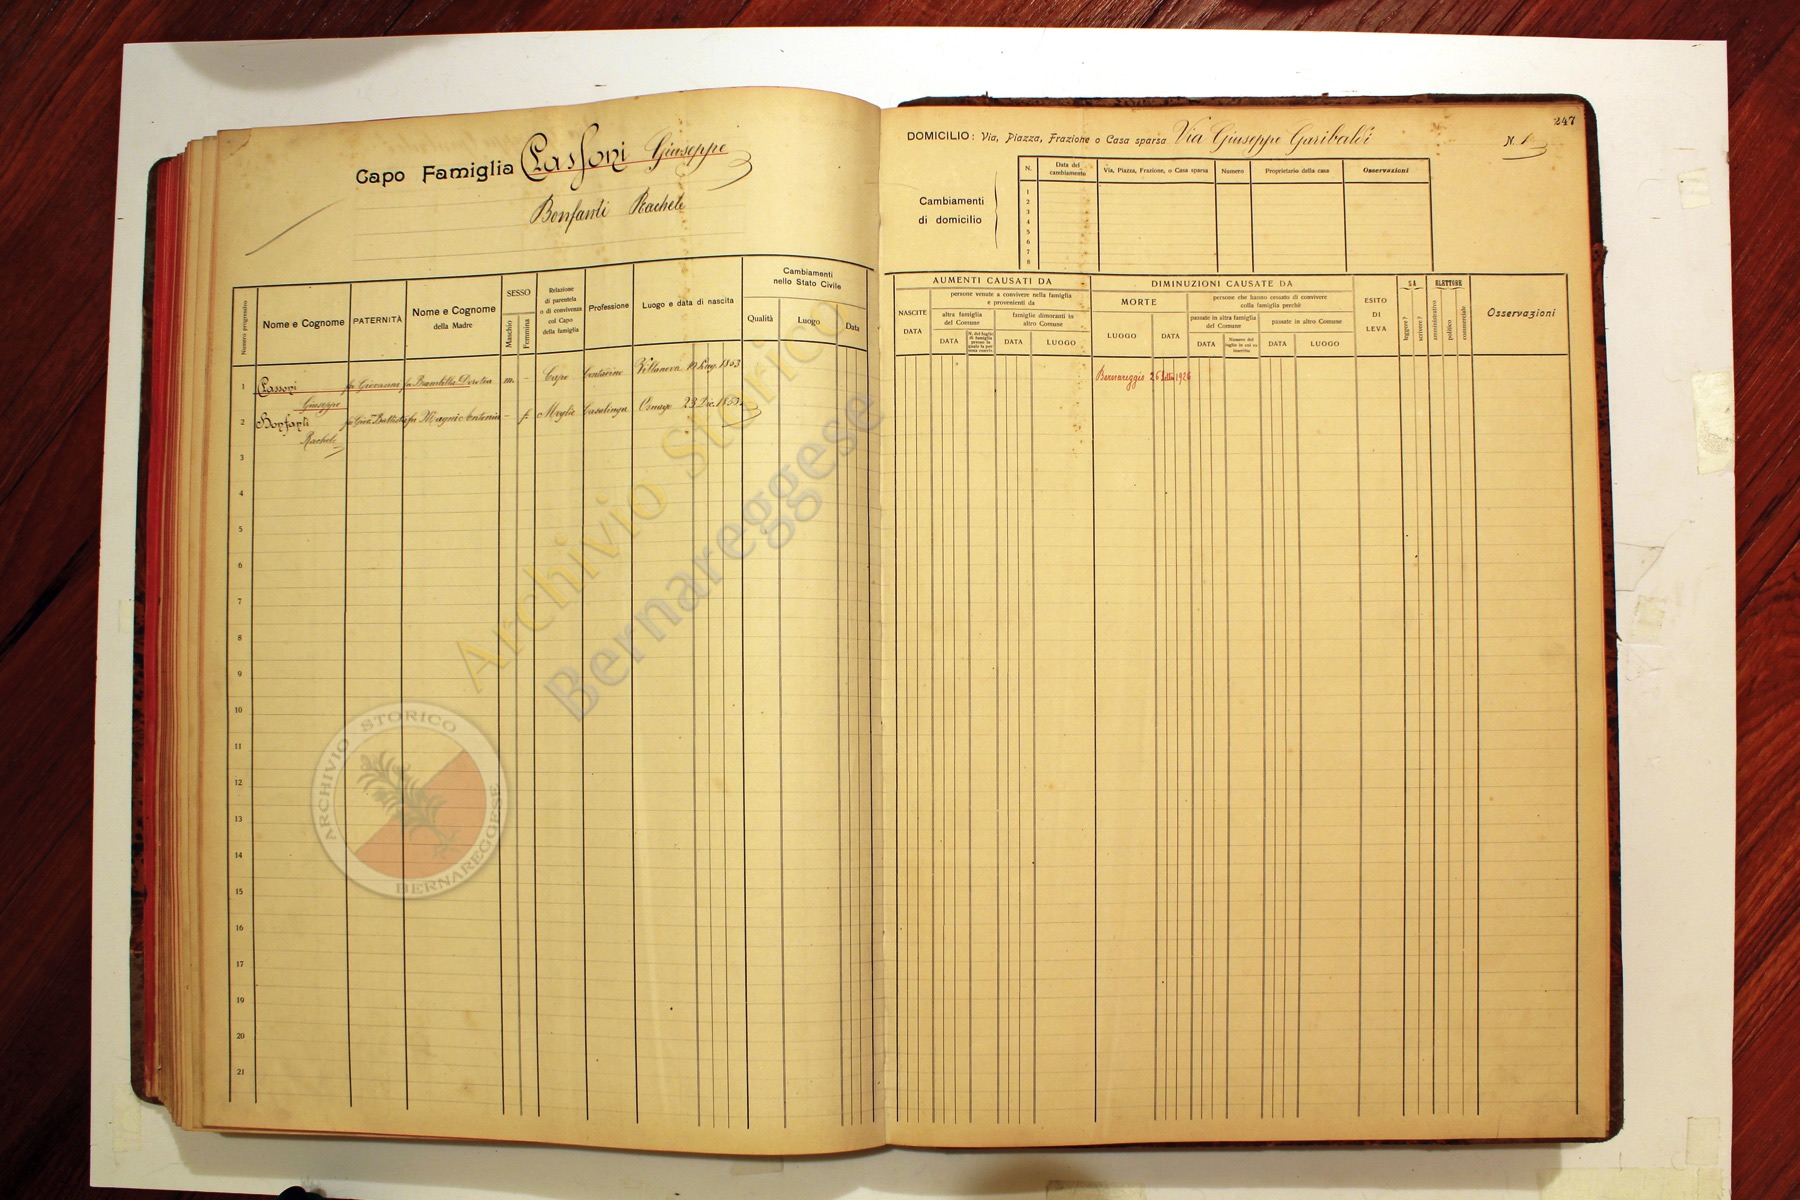 Capo Famiglia Cassoni Giuseppe
Bonfanti Rachele
Numero progressivo
Nome e Cognome
PATERNITÀ
Nome e Cognome
della Madre
SESSO
Maschio
Femmina
Relazione
di parentela
o di convivenza
col Capo
della famiglia
Professione
Luogo e data di nascita
Cambiamenti
nello Stato Civile
Qualità
Luogo
Data
1 Cassoni fu Giovanni fu Brambilla Dorotea m. - Capo Villanova 1853
Giuseppe
2 Bonfanti fu Gio. Battista fu Magni Antonia - f. Moglie Casalinga Osnago 23 Dic. 1853
Rachele
3
4
5
6
7
8
9
10
11
12
13
14
15
16
17
19
20
21
247
DOMICILIO: Via, Piazza, Frazione o Casa sparsa Via Giuseppe Garibaldi N.
Cambiamenti
di domicilio
N.
Data del
cambiamento
Via, Piazza, Frazione, o Casa sparsa
Numero
Proprietario della casa
Osservazioni
1
2
3
4
5
6
7
8
AUMENTI CAUSATI DA
NASCITE
DATA
persone venute a convivere nella famiglia
e provenienti da
altra famiglia
del Comune
DATA
N. del foglio
di famiglia
presso la
quale la per
sona convis.
famiglie dimoranti in
altro Comune
DATA
LUOGO
DIMINUZIONI CAUSATE DA
MORTE
LUOGO
DATA
persone che hanno cessato di convivere
colla famiglia perchè
passate in altra famiglia
del Comune
DATA
Numero del
foglio in cui va
inscritto
passate in altro Comune
DATA
LUOGO
ESITO
DI
LEVA
SA
leggere?
scrivere?
ELETTORE
amministrativo
politico
commerciale
Osservazioni
Bernareggio 26 1926
Archivio Storico
Bernareggese
ARCHIVIO STORICO
BERNAREGGESE